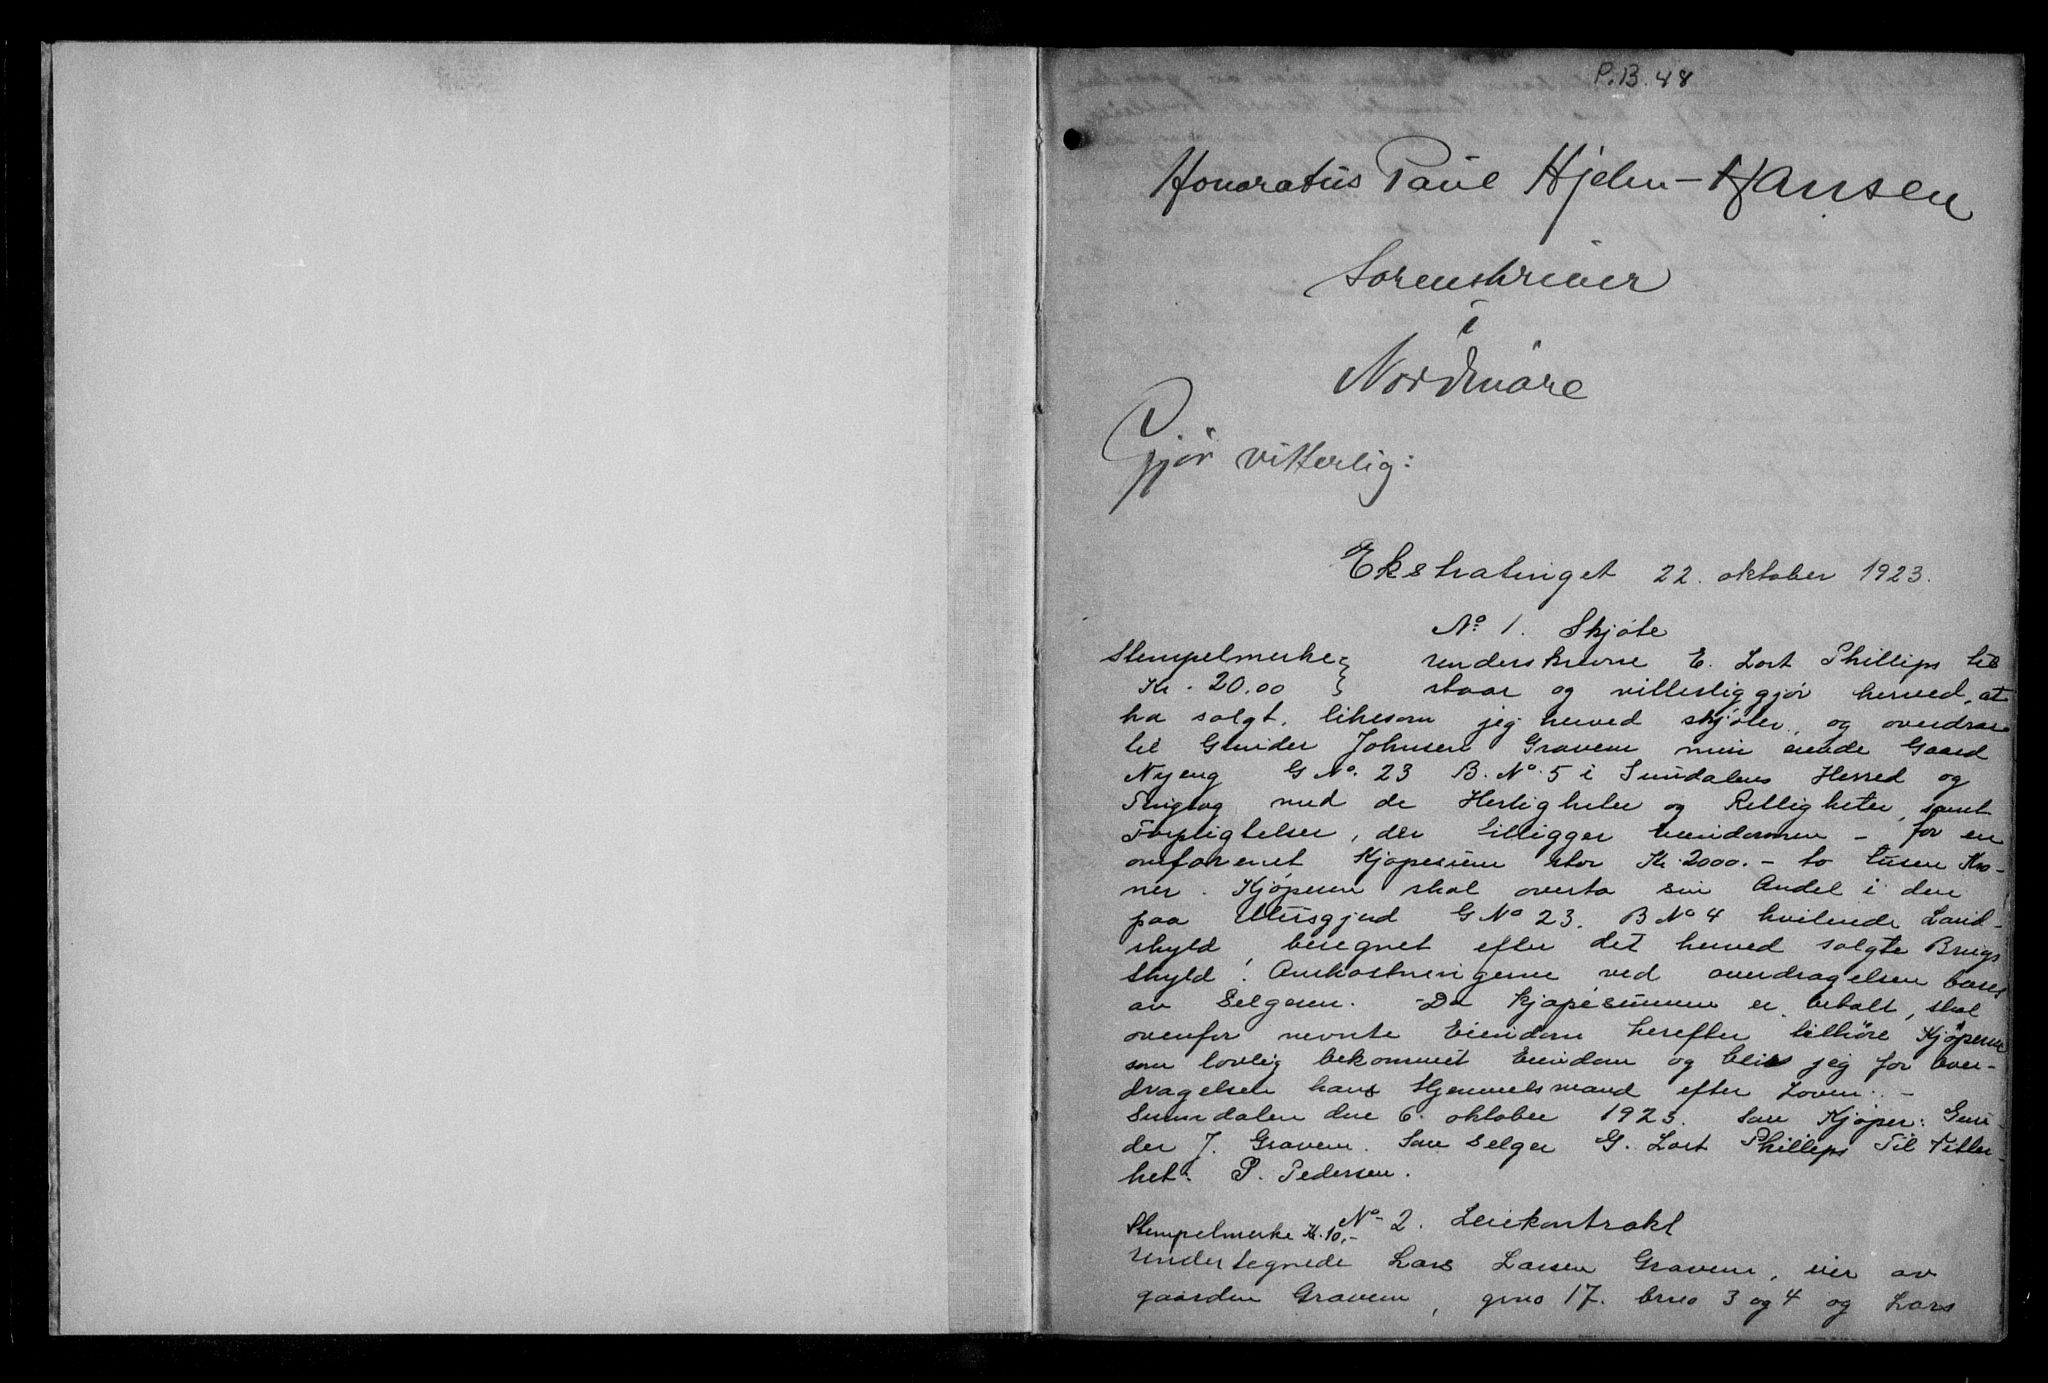 P.B. 48
Honoratus Paul Hjelm-Hansen
Sorenskriver
i
Nordmöre
Gjør vitterlig:
Ekstratinget 22. oktober 1923.
No 1. Skjøte
Stempelmerke Underskrevne E. Lort Phillips til
Kr. 20.00 staar og vitterliggjør herved, at
ha solgt, likesom jeg herved skjøter, og overdrar
til Gunder Johnsen Gravem min eiende Gaard
Nyeng G No. 23 B. No. 5 i Sundalens Herred og
Tinglag med de Herligheter og Rettigheter, samt
Forpligtelser, der tilligger Eiendommen - for en
omforenet Kjøpesum stor Kr. 2000.- to tusen Kro-
ner. Kjøperen skal overta sin Andel i den
paa G No 23. B No 4 hvilende Land-
skyld beregnet efter det herved solgte Brugs
skyld. Omkostningerne ved overdragelsen bæres
av Selgeren. -Da kjøpesummen er betalt, skal
ovenfor nevnte Eiendom herefter tilhöre Kjöperen
som lovlig bekommet Eiendom og blir jeg for over-
dragelsen hans Hjemmelsmand efter Loven. -
Sunndalen den 6. oktober 1923. Som Kjøper: Gun-
der J. Gravem. Som Selger G. Lort Phillips Til Vitter-
het: P. Pedersen.
No 2. Leiekontrakt
Stempelmerke Kr. 10.-
Undertegnede Lars Larsen Gravem, eier av
gaarden Gravem, gno 17. bno 3 og 4 og Lars